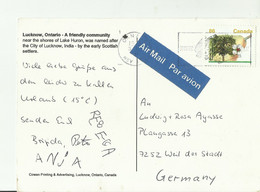 Lucknow, Ontario - A friendly community
near the shores of Lake Huron, was named after
the City of Lucknow, India - by the early Scottish
settlers.
Viele liebe Grüße aus
dem leider zu kalten
Urlaub (15°C)
Senden Euch
Brigda, Peter
ANJA
Air Mail Par avion
Canada
An
Ludwig + Rosa Ayasse
Plangasse 13
7252 Weil der Stadt
Germany